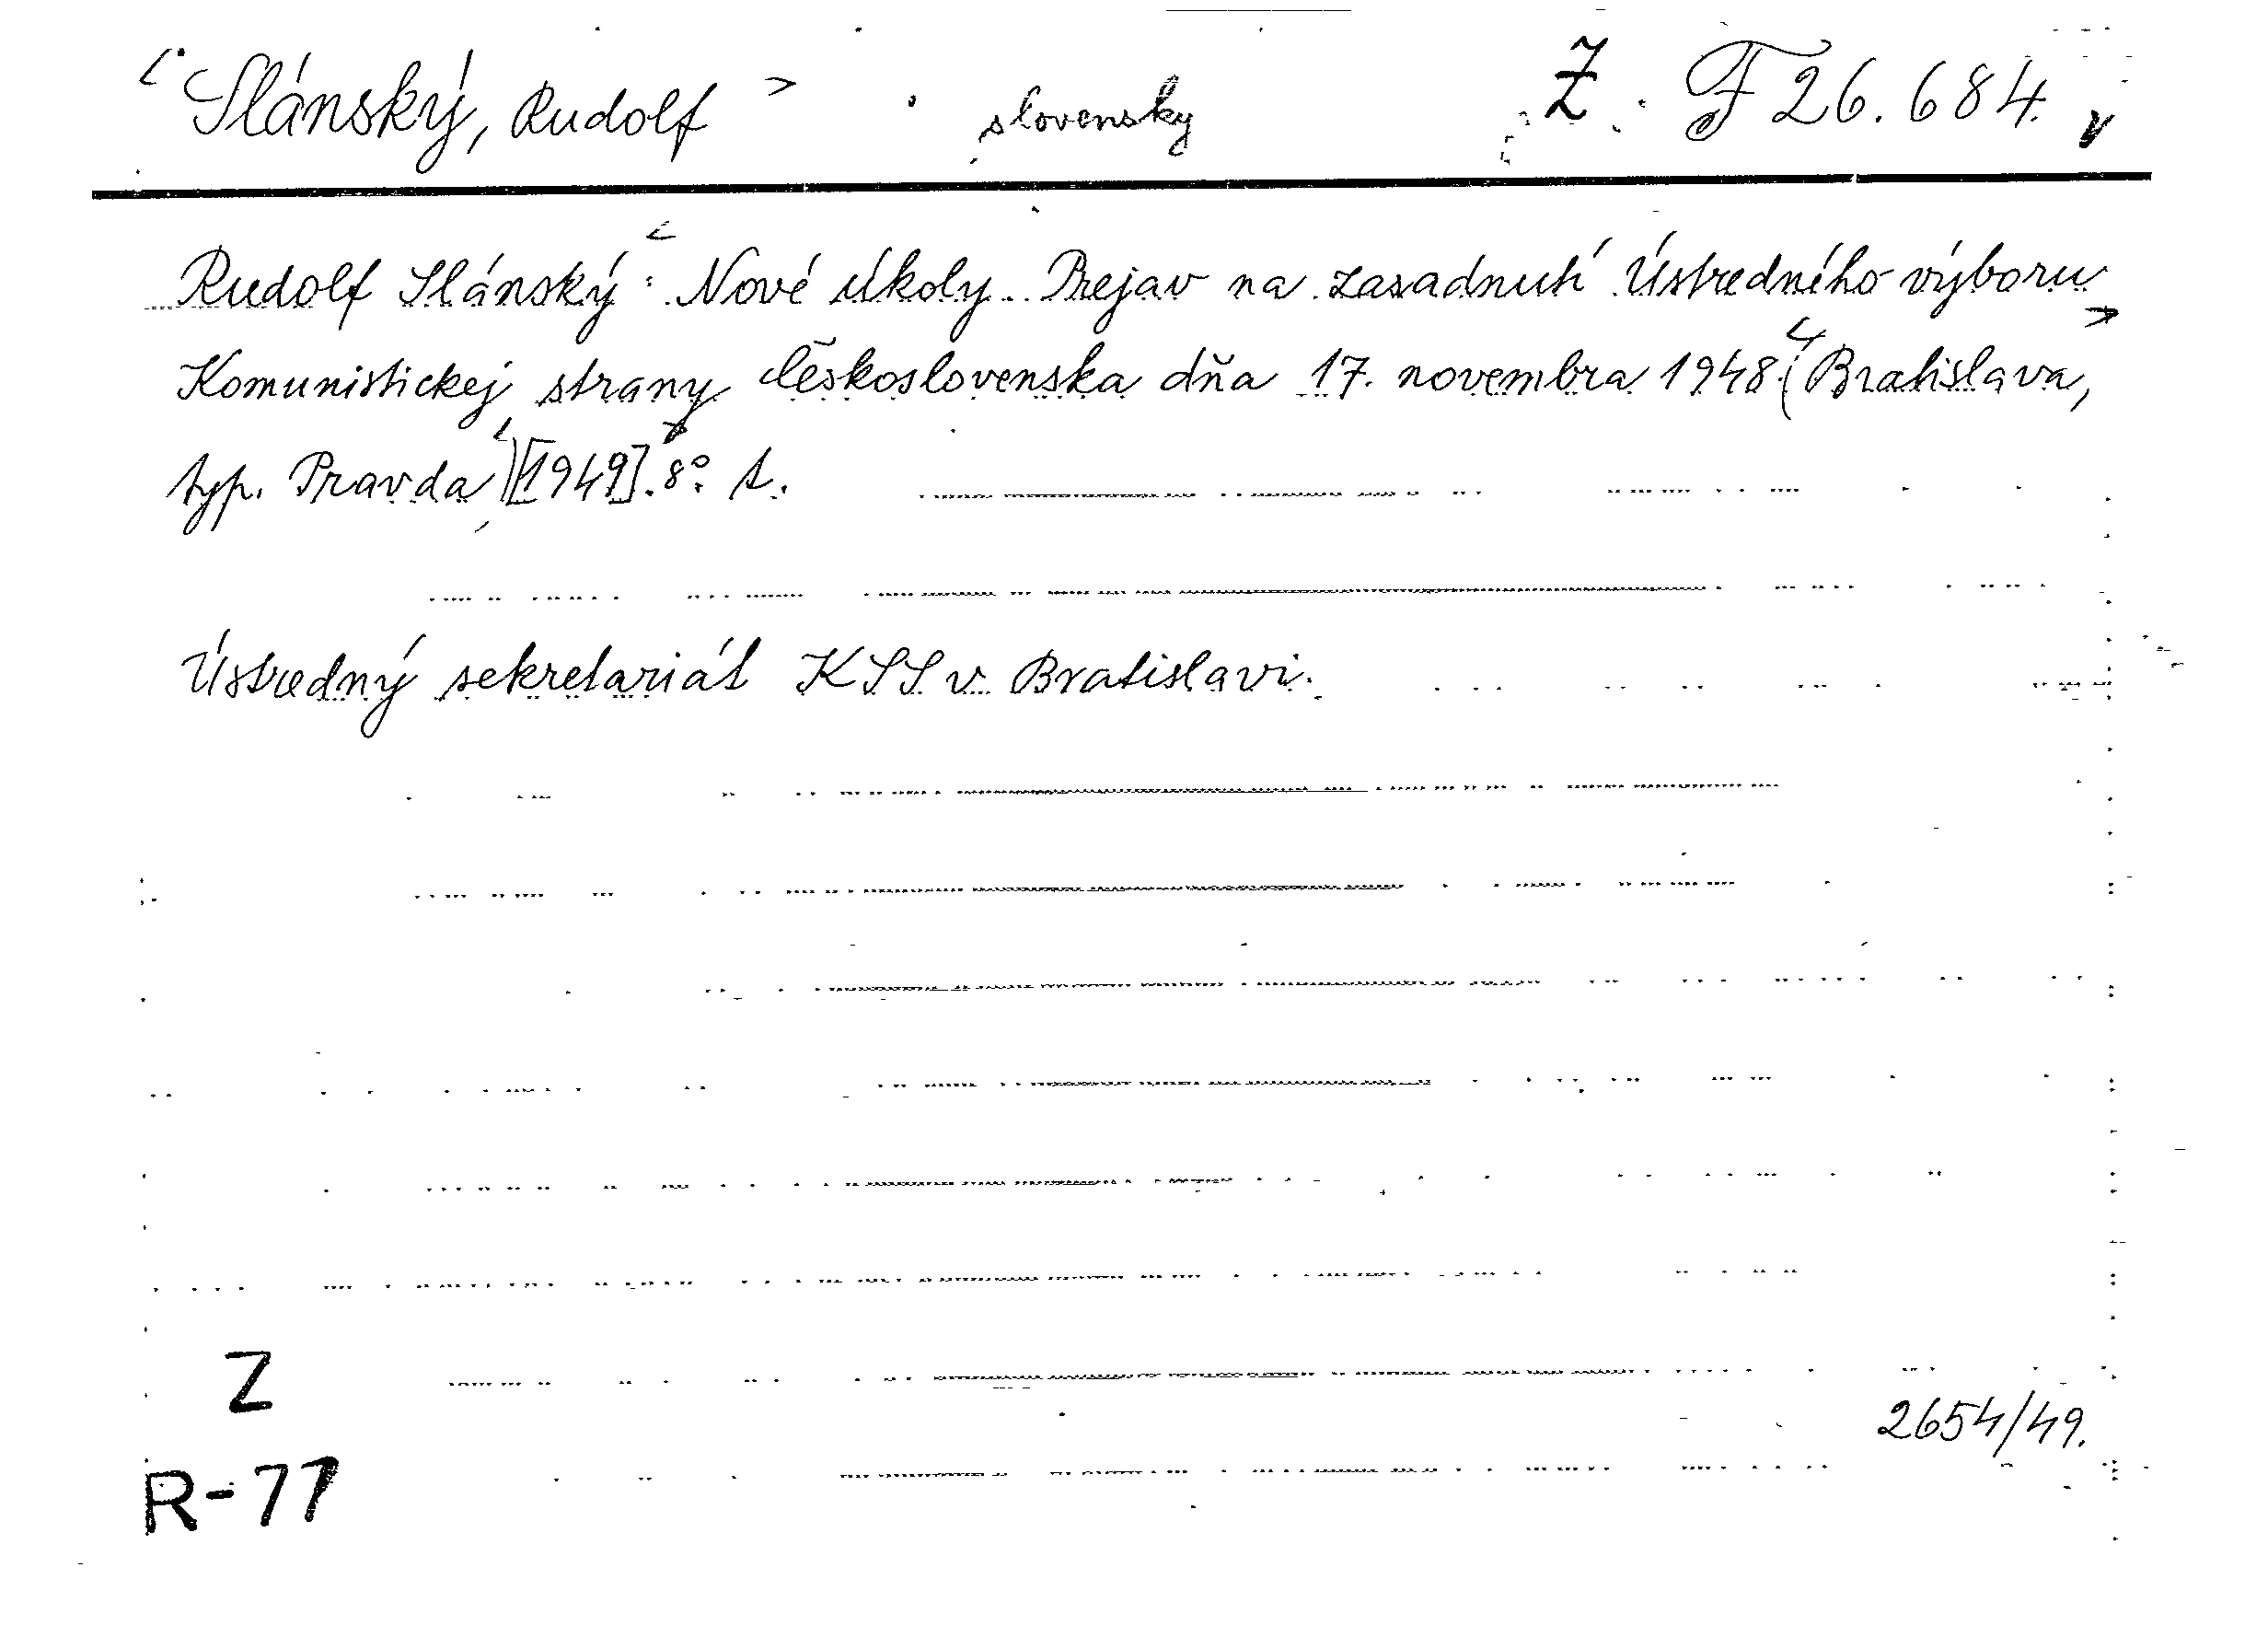 Slánský, Rudolf slovensky Z F 26.684.
Rudolf Slánský: Nové úkoly. Prejav na zasadnutí Ústredného výboru
Komunistickej strany Československa dňa 17. novembra 1948. (Bratislava,
typ. Pravda) [1949]. 8°.
Ústredný sekretariát KSS v Bratislavi.
Z
2654/49.
R-77